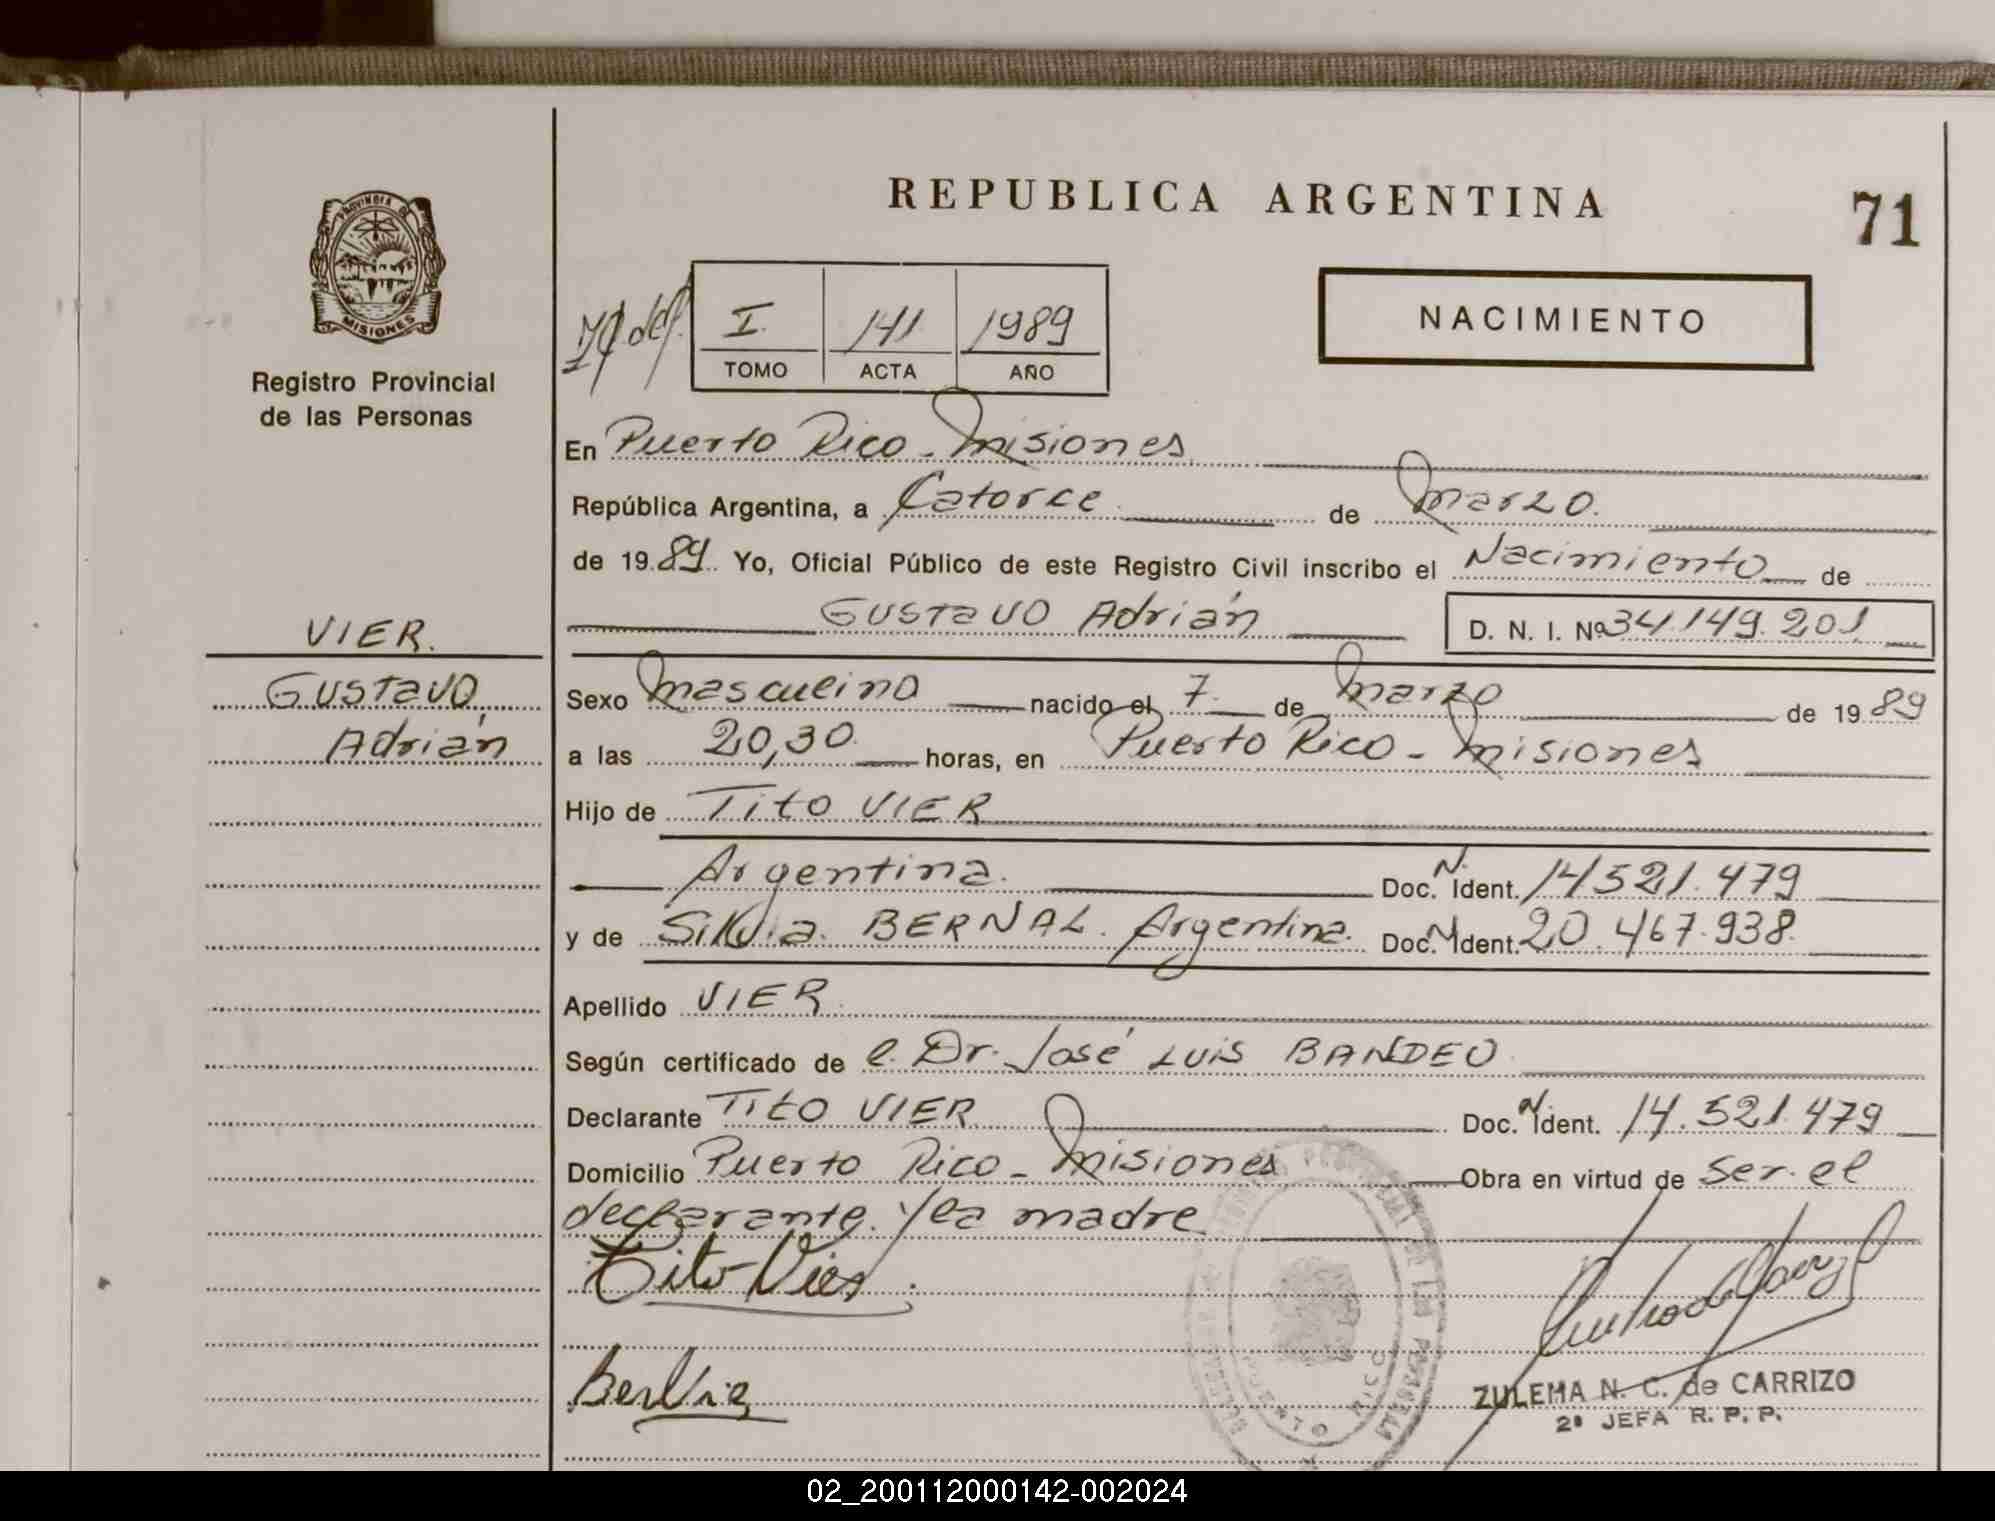 REPUBLICA ARGENTINA
71
PROVINCIA DE
MISIONES
Registro Provincial
de las Personas
I 141 1989
TOMO ACTA AÑO
NACIMIENTO
En Puerto Rico - Misiones
República Argentina, a Catorce de Marzo.
de 19 89 Yo, Oficial Público de este Registro Civil inscribo el Nacimiento de
Gustavo Adrián D. N. I. Nº 34.149.201
VIER.
Gustavo
Adrián
Sexo Masculino nacido el 7 de Marzo de 19 89
a las 20,30 horas, en Puerto Rico - Misiones
Hijo de Tito VIER
Argentina. Doc. N. Ident. 14521.479
y de Silvia BERNAL. Argentina. Doc. N Ident. 20.467.938.
Apellido VIER.
Según certificado de el Dr. José Luis BANDEO
Declarante Tito VIER Doc. N Ident. 14.521.479
Domicilio Puerto Rico - Misiones Obra en virtud de ser el
declarante y la madre
Tito Vier
PUERTO RICO
ZULEMA N. C. de CARRIZO
2ª JEFA R. P. P.
02_200112000142-002024